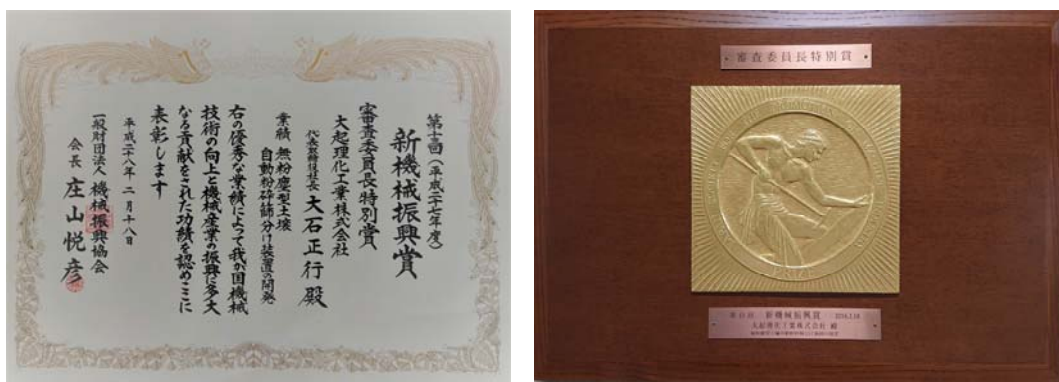 第十三回(平成二十七年度)
新機械振興賞
審査委員長特別賞
大起理化工業株式会社
代表取締役社長 大石正行 殿
業績 無粉塵型土壌
自動粉砕篩分け装置の開発
右の優秀な業績によって我が国機械
技術の向上と機械産業の振興に多大
なる貢献をされた功績を認めここに
表彰します
平成二十八年 二月十八日
一般財団法人 機械振興協会
会長 庄山悦彦
審査委員長特別賞
PRIZE
新機械振興賞
大起理化工業株式会社 殿